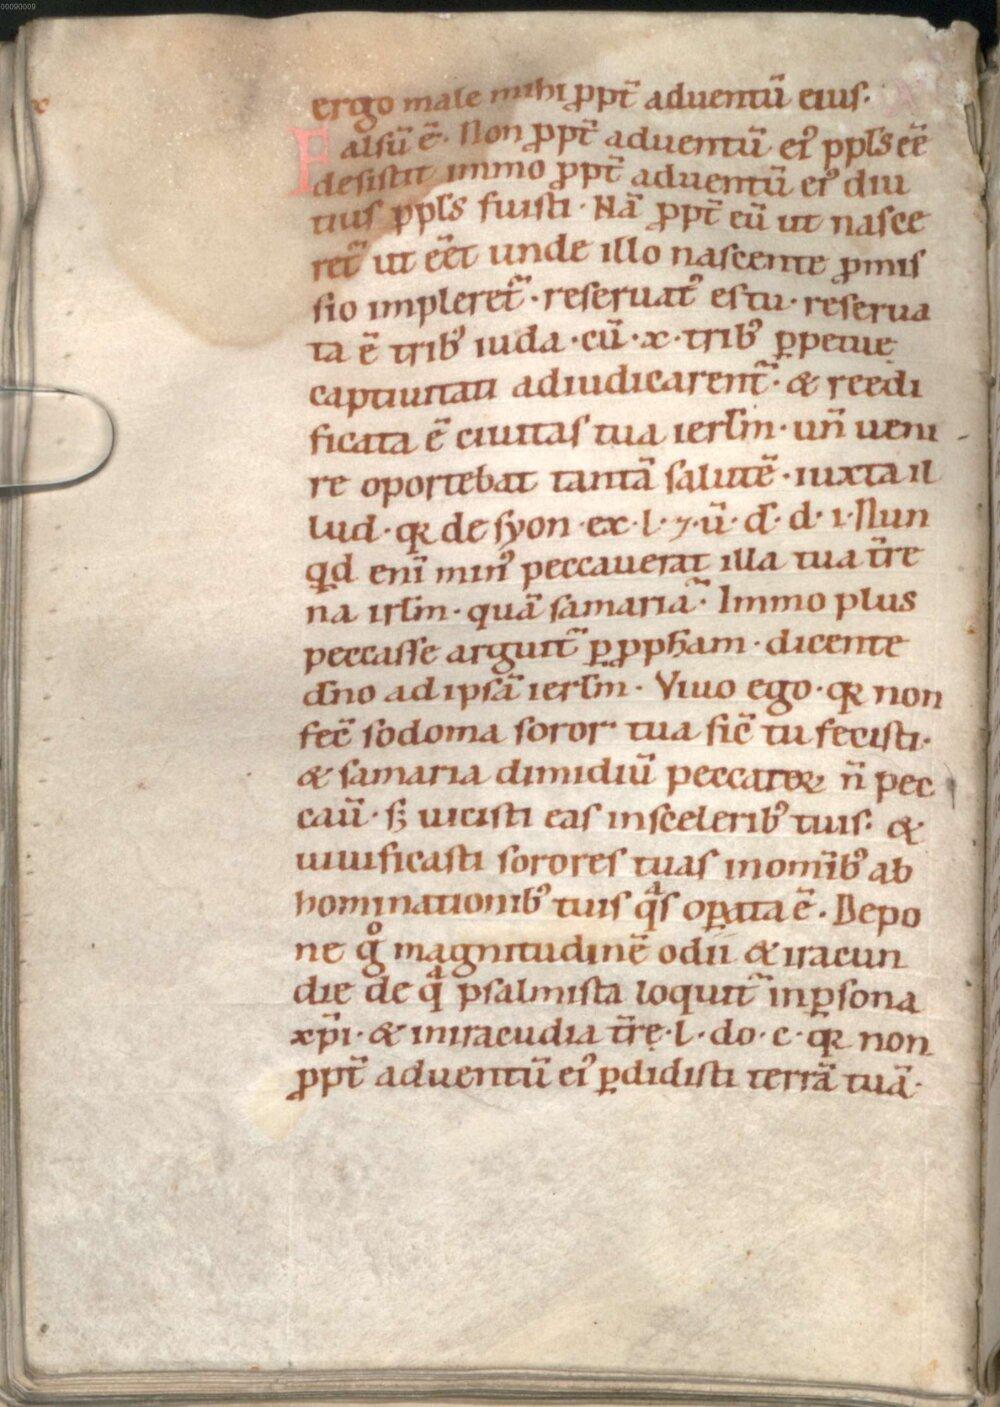 00090009
x
ergo male mihi ꝓpt̄ aduentū eius·
Falsū ē· Non ꝓpt̄ aduentū eiꝰ ppl̄s eē
desistit immo ꝓpt̄ aduentū eiꝰ diu
tius ppl̄s fuisti· Nā ꝓpt̄ eū ut nasce
ret̄ ut eēt unde illo nascente ꝓmis
sio impleret̄· reseruatꝰ es tu· reserua
ta ē tribꝰ iuda· cū· x· tribꝰ ꝑpetuę
captiuitati adiudicarent̄· & reedi
ficata ē ciuitas tua ierl̄m· un̄ ueni
re oportebat tantā salutē· iuxta il
lud· qꝛ de syon· ex· l· ⁊· ū· đ· d· i· Nun
qd enī minꝰ peccauerat illa tua t̄re
na irl̄m· quā samaria· Immo plus
peccasse arguit̄ ꝑ ꝓpħam· dicente
dn̄o ad ipsā ierl̄m· Viuo ego· qꝛ non
fec̄ sodoma soror tua sic̄ tu fecisti·
& samaria dimidiū peccatoꝝ n̄ pec
cau̅· sꝫ uicisti eas in sceleribꝰ tuis· &
iustificasti sorores tuas in om̄ibꝰ ab
hominationibꝰ tuis qͣs opata ē· Depo
ne gͦ magnitudinē odii & iracun
die de qͣ psalmista loquit̄ in ꝑsona
xp̄i· & in iracudia t̄rę· l· do· c· qꝛ non
ꝓpt̄ aduentū eiꝰ ꝑdidisti terrā tuā·